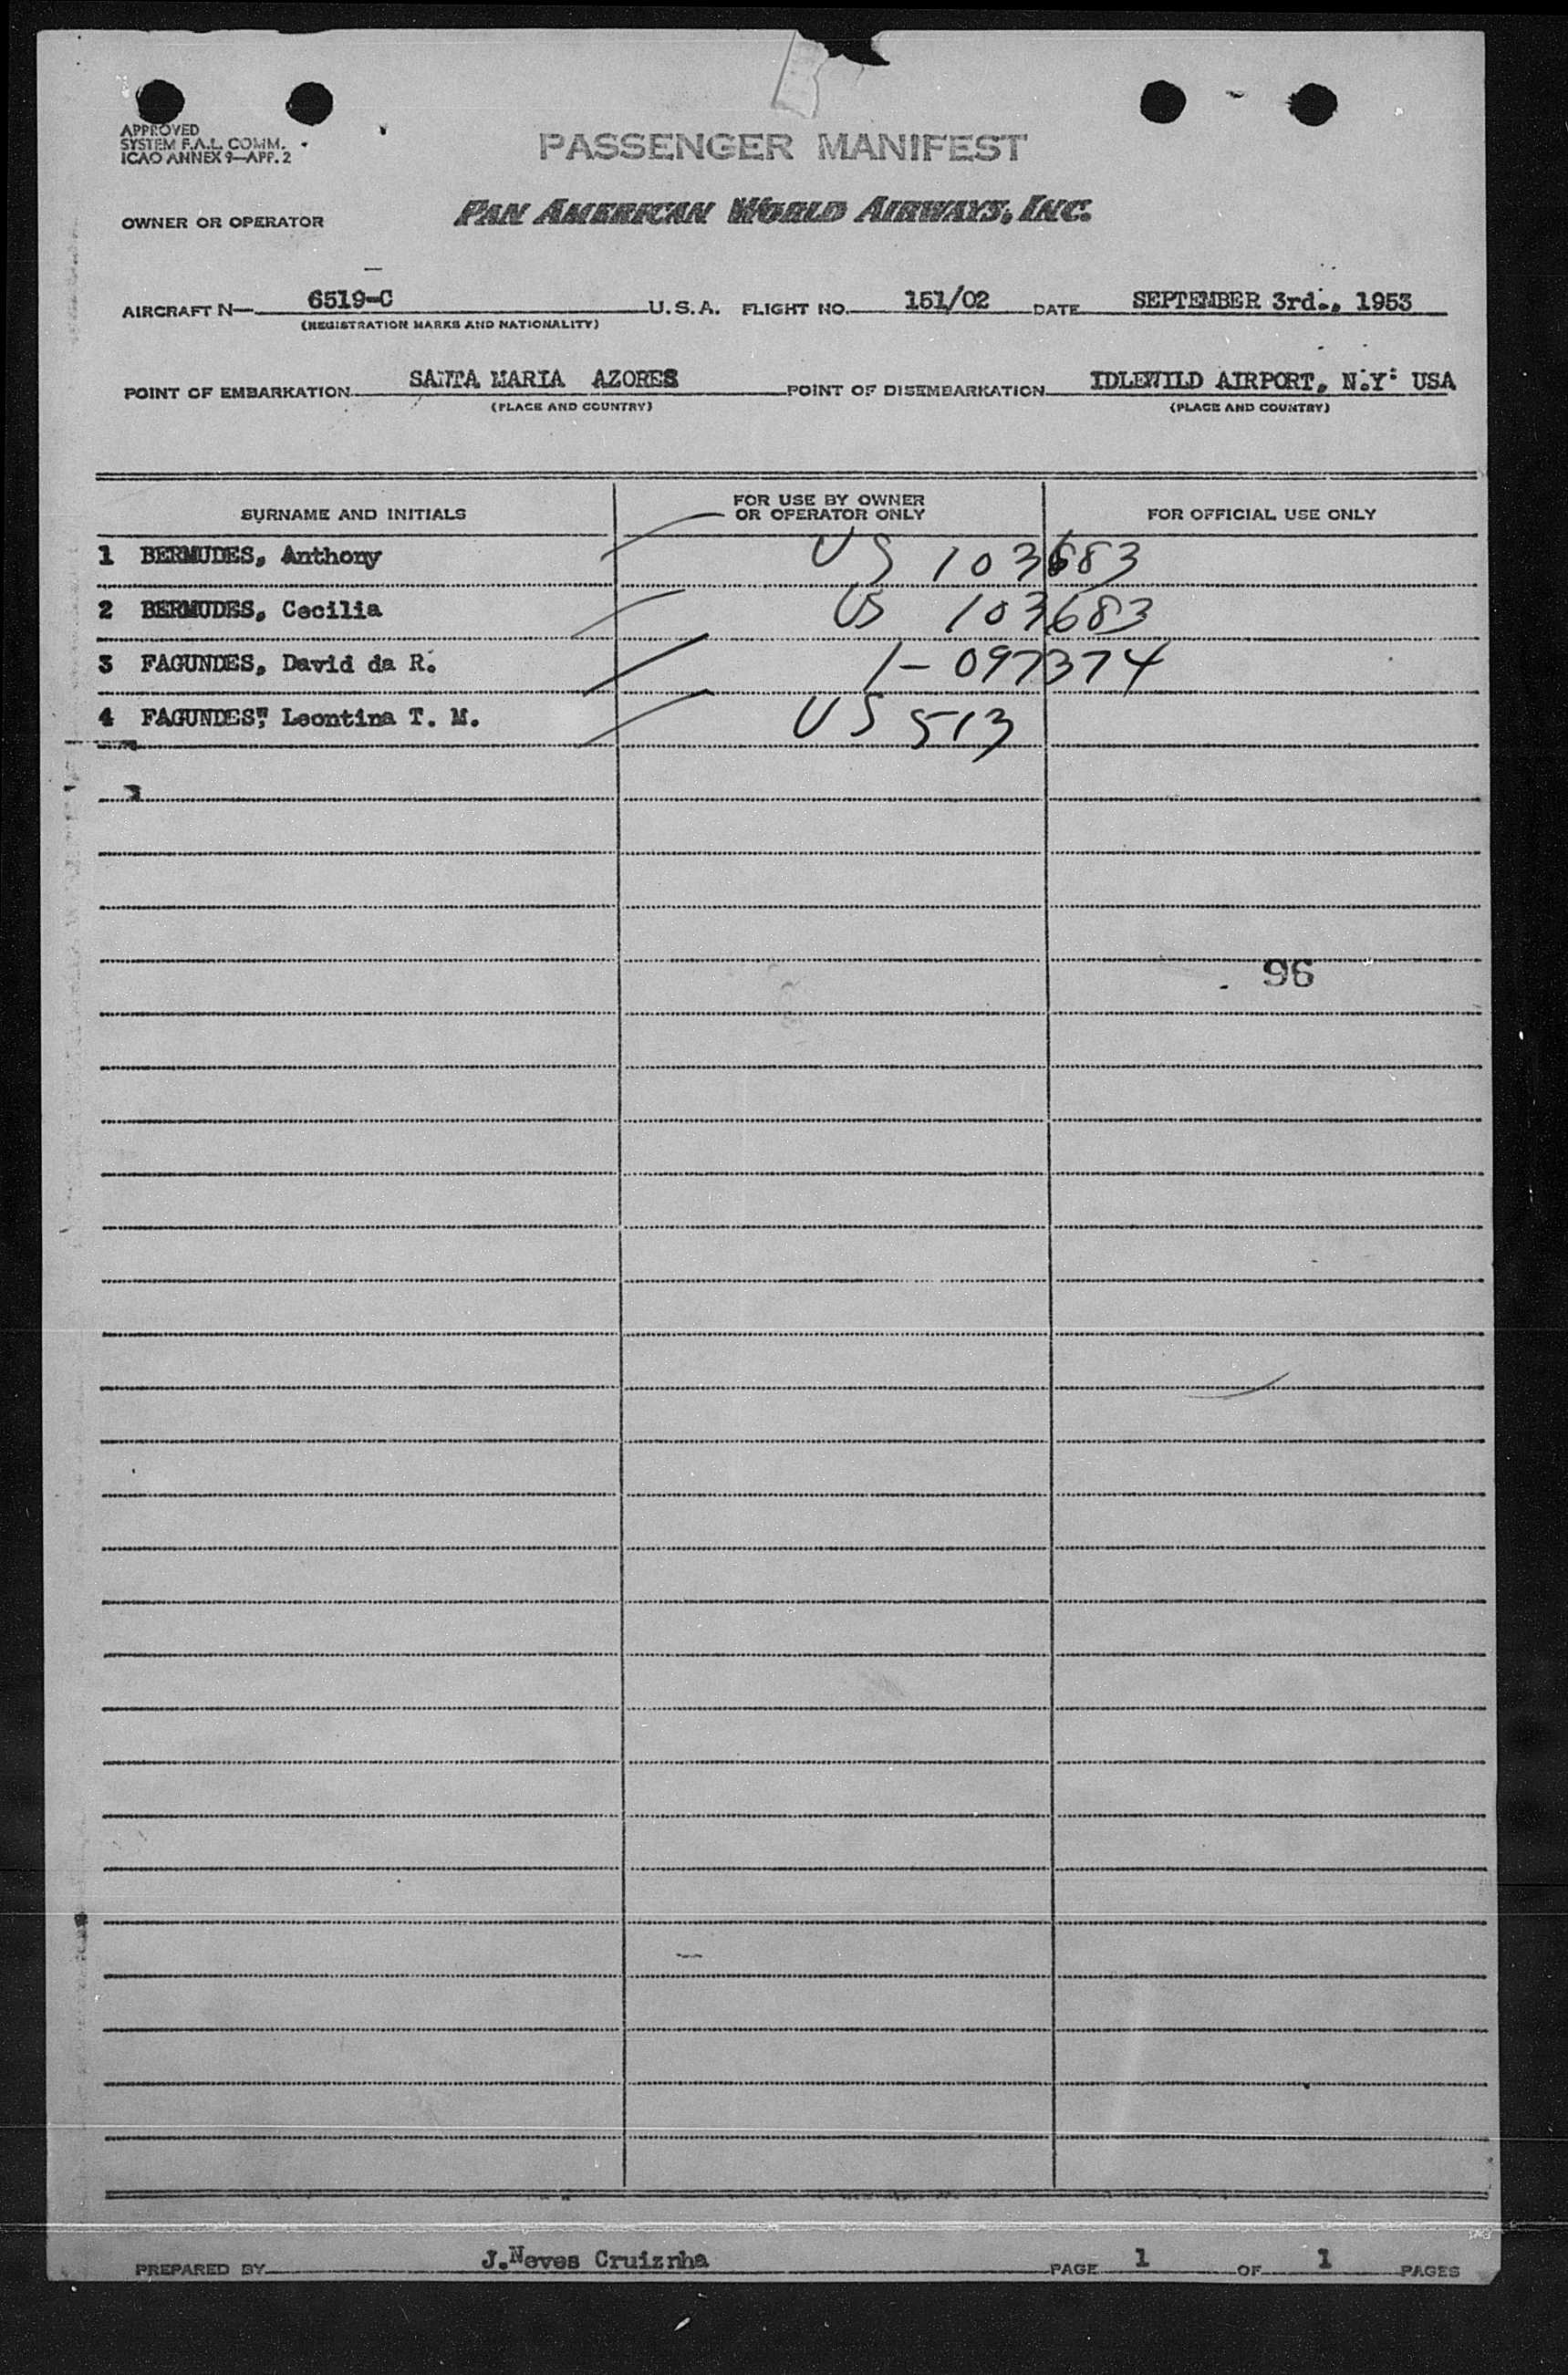 APPROVED
SYSTEM F.A.L. COMM.
ICAO ANNEX 9—APP. 2
PASSENGER MANIFEST
OWNER OR OPERATOR PAN AMERICAN WORLD AIRWAYS, INC.
AIRCRAFT N— 6519-C U.S.A. FLIGHT NO. 151/02 DATE SEPTEMBER 3rd., 1953
(REGISTRATION MARKS AND NATIONALITY)
POINT OF EMBARKATION SANTA MARIA AZORES POINT OF DISEMBARKATION IDLEWILD AIRPORT, N.Y. USA
(PLACE AND COUNTRY) (PLACE AND COUNTRY)
SURNAME AND INITIALS FOR USE BY OWNER OR OPERATOR ONLY FOR OFFICIAL USE ONLY
1 BERMUDES, Anthony US 103683
2 BERMUDES, Cecilia US 103683
3 FAGUNDES, David da R. 1-097374
4 FAGUNDES, Leontina T. M. US 513
96
PREPARED BY J.Neves Cruiznha PAGE 1 OF 1 PAGES